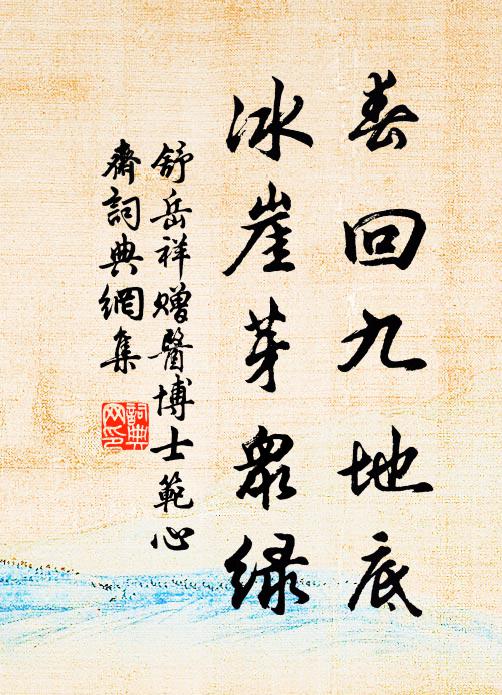 春回九地底
冰崖芽眾綠
舒岳祥贈醫博士範心
齋詞典網集
詞典網印